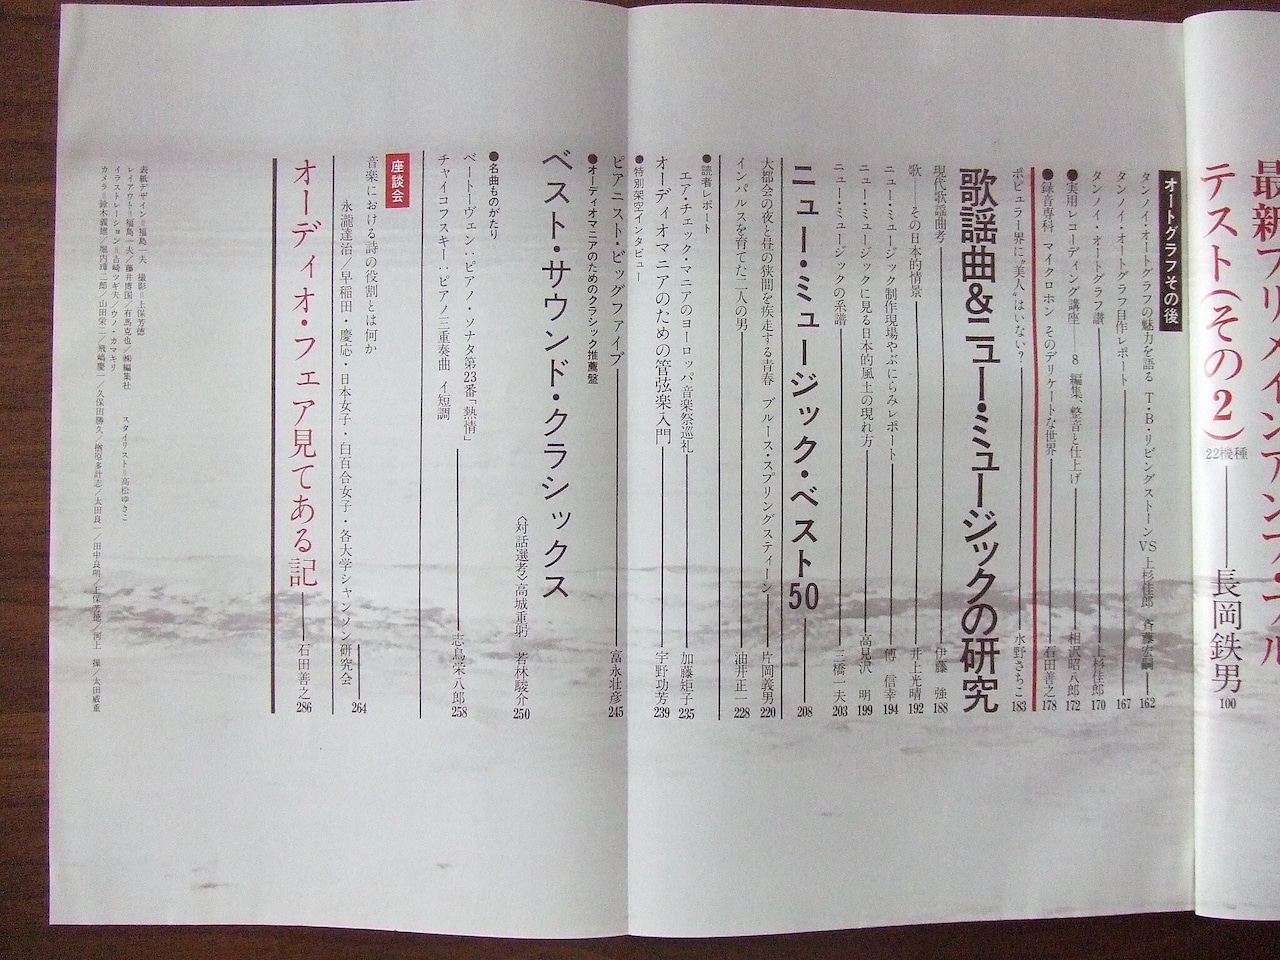 最新プリメインアンプ・フル
テスト(その2)22機種
長岡鉄男 100
オートグラフその後
タンノイ・オートグラフの魅力を語る T・B・リビングストーン VS 上杉佳郎 斉藤宏嗣 162
タンノイ・オートグラフ自作レポート 167
タンノイ・オートグラフ讃 上杉佳郎 170
●実用レコーディング講座 8 編集、整音と仕上げ 相沢昭八郎 172
●録音専科 マイクロホン そのデリケートな世界 石田善之 178
ポピュラー界に〝美人〟はいない? 水野さちこ 183
歌謡曲&ニュー・ミュージックの研究
現代歌謡曲考 伊藤 強 188
歌——その日本的情景 井上光晴 192
ニュー・ミュージック制作現場やぶにらみレポート 傅 信幸 194
ニュー・ミュージックに見る日本的風土の現れ方 高見沢 明 199
ニュー・ミュージックの系譜 三橋一夫 203
ニュー・ミュージック・ベスト50 208
大都会の夜と昼の狭間を疾走する青春 ブルース・スプリングスティーン 片岡義男 220
インパルスを育てた二人の男 油井正一 228
●読者レポート
エア・チェック・マニアのヨーロッパ音楽祭巡礼 加藤矩子 235
オーディオマニアのための管弦楽入門 宇野功芳 239
●特別架空インタビュー
ピアニスト・ビッグファイブ 富永壮彦 245
●オーディオマニアのためのクラシック推薦盤
ベスト・サウンド・クラシックス
〈対話選考〉高城重躬 若林駿介 250
●名曲ものがたり
ベートーヴェン:ピアノ・ソナタ第23番「熱情」
チャイコフスキー:ピアノ三重奏曲 イ短調
志鳥栄八郎 258
座談会
音楽における詩の役割とは何か
永瀧達治/早稲田・慶応・日本女子・白百合女子・各大学シャンソン研究会 264
オーディオ・フェア見てある記 石田善之 286
表紙デザイン=福島一夫 撮影=上保芳徳
レイアウト=福島一夫/藤井博国/有馬克也/㈱編集社 スタイリスト=高松ゆきこ
イラストレーション=古崎ツギ夫/ウノ・カマキリ
カメラ=鈴木義雄/堀内璋二郎/山田栄二/飛嶋慶一/久保田勝久/楢原多計志/太田良一/田中良明/上保芳徳/河上 操/太田威重